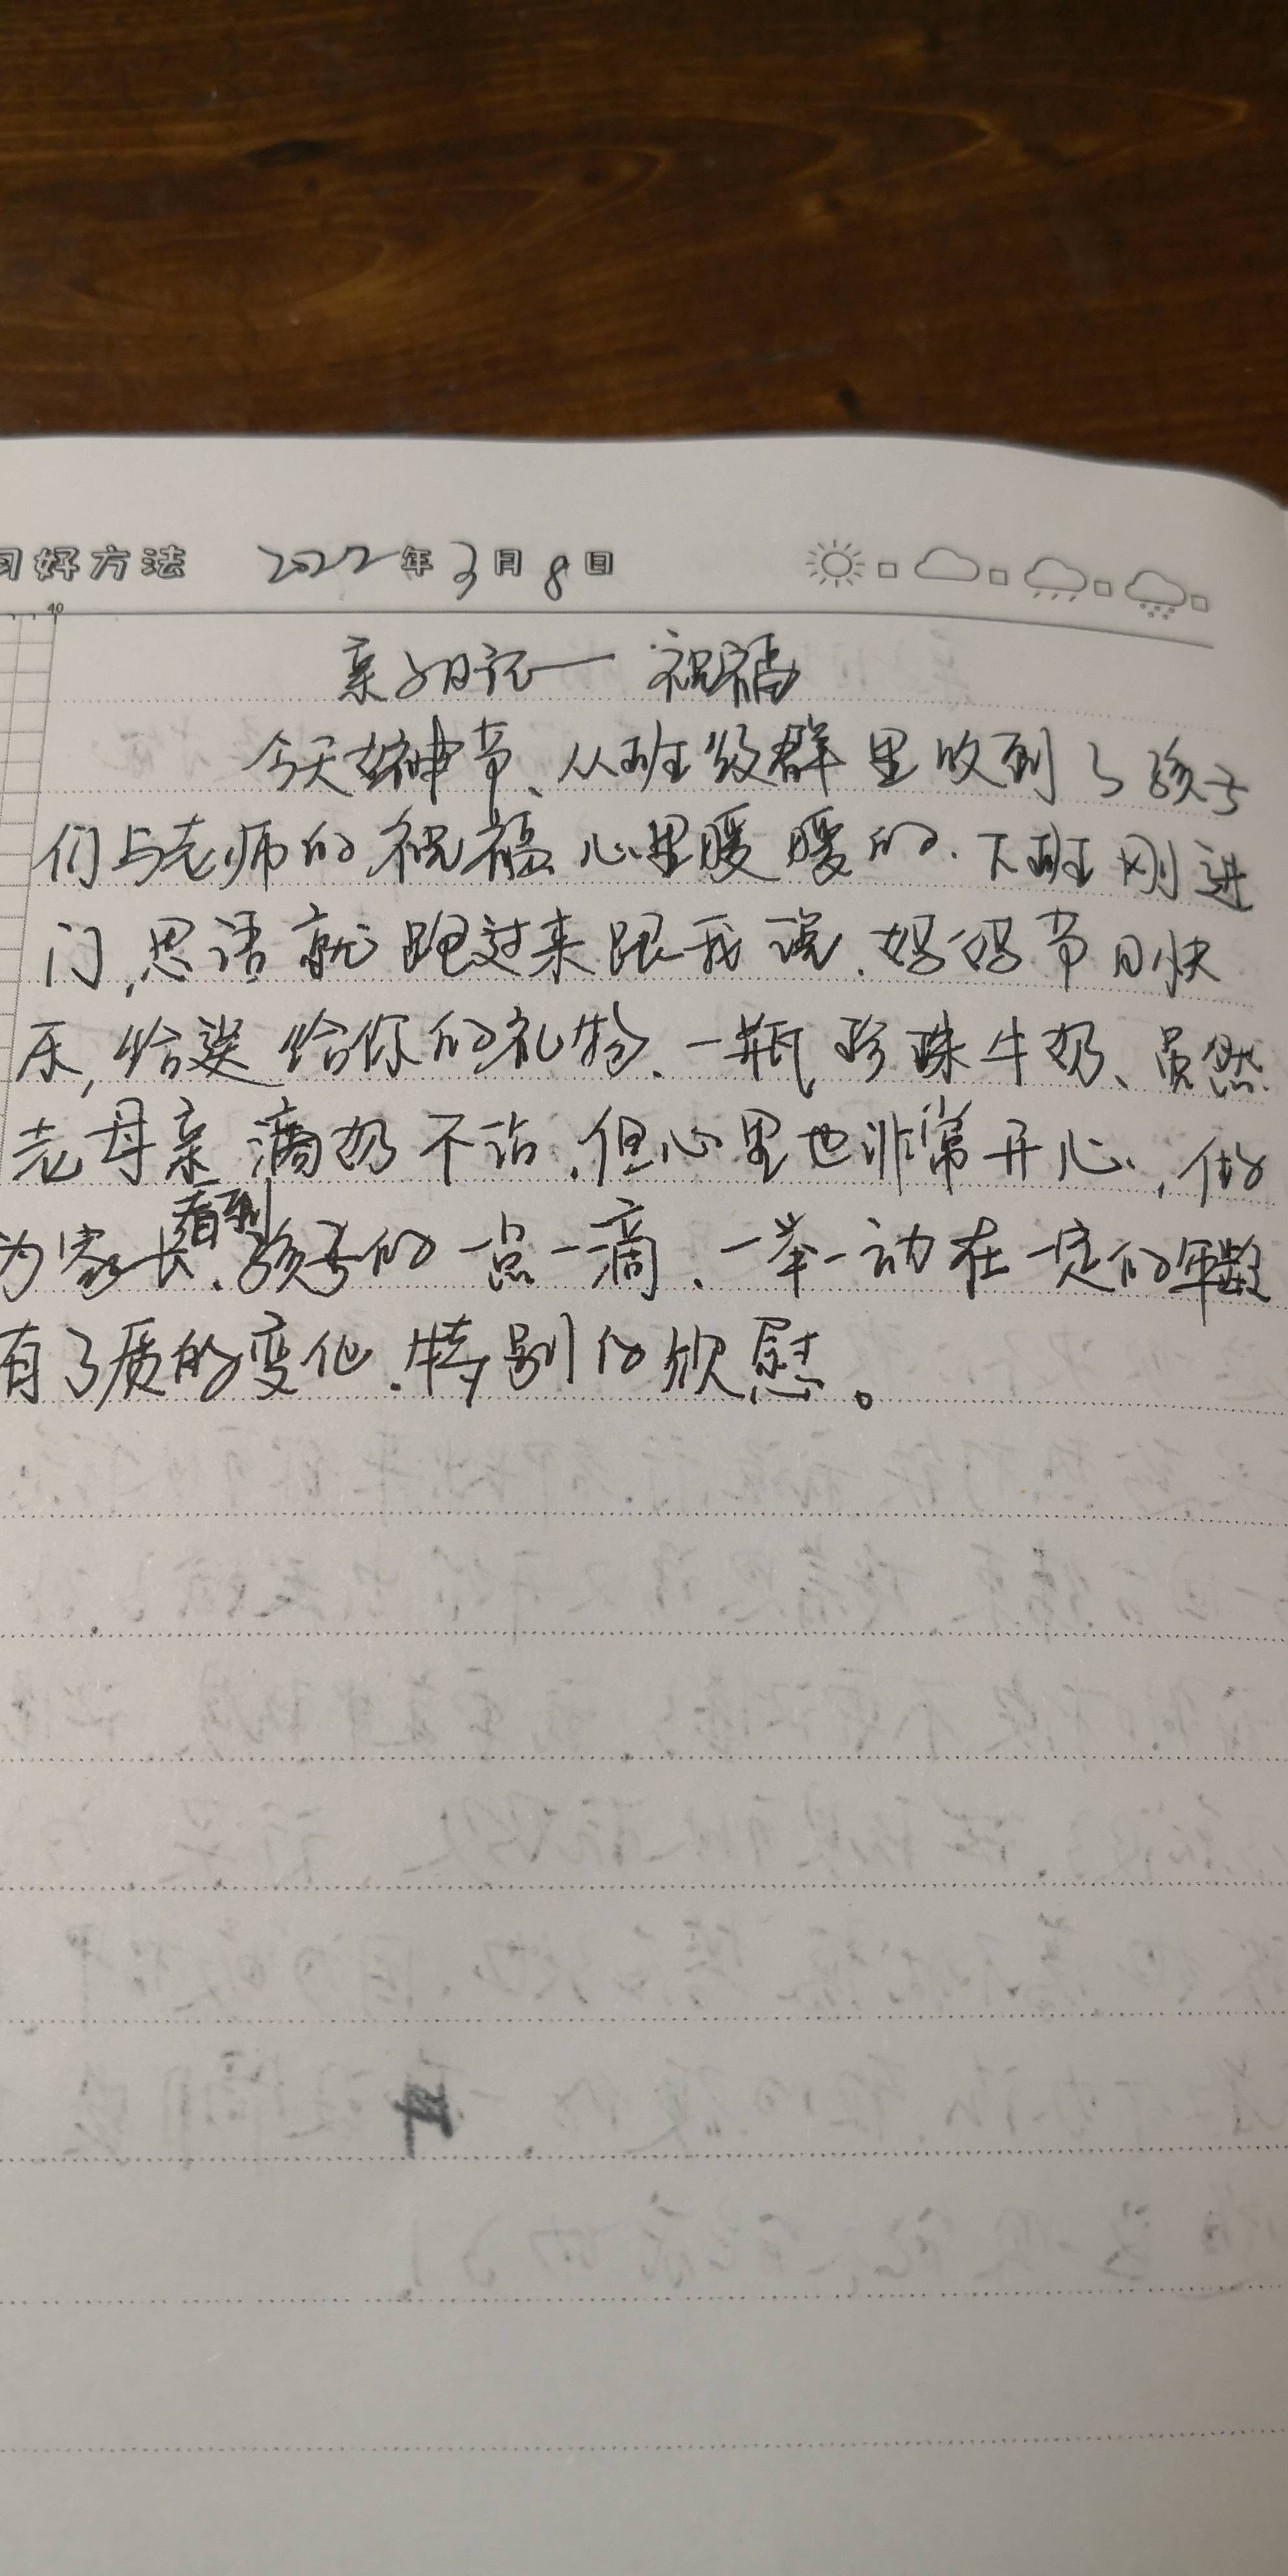 习好方法 2022年3月8日
40
亲子日记一 祝福
今天女神节、从班级群里收到了孩子
们与老师的祝福心里暖暖的.下班刚进
门,思语就跑过来跟我说.妈妈节日快
乐,给送给你的礼物、一瓶珍珠牛奶、虽然
老母亲滴奶不沾.但心里也非常开心,做
为家长.看到孩子的一点一滴、一举一动在一定的年龄
有了质的变化.特别的欣慰。